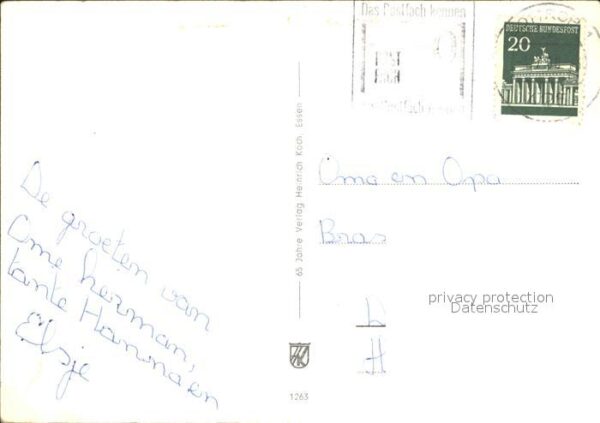 Das Postfach kennen
DEUTSCHE BUNDESPOST
20
65 Jahre Verlag Heinrich Koch, Essen
Oma en Opa
Bras
privacy protection
Datenschutz
De groeten van
Ome herman,
tante Hanna en
Elsje
1263